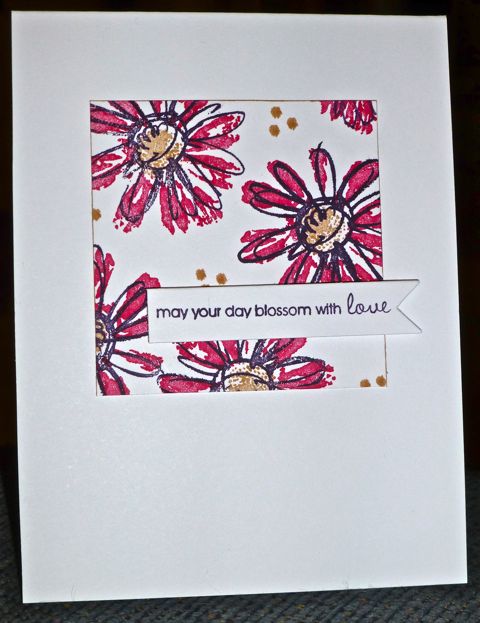 may your day blossom with love